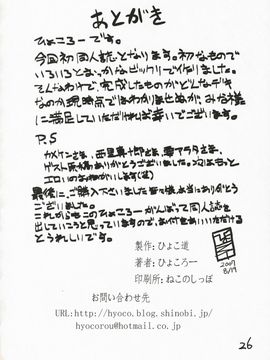 あとがき
ひょころーです。
今回初同人誌となります。初なもので
いろいろとおっかなビックリでイ作りました。
そんなわけで、完成したものがどんなデキ
なのか現時点ではわかりませぬが、みな様
に満足していただければ幸いでございます。
P.S
ゲスト原稿ありがとうございました。次はもっと
最後に、ご購入下さいました皆々様本当にありがとう
ございました。
これからもこのひょころーがんばって同人誌を
出していこうと思っていますので、お付きあいいただける
とうれしいです。
2007
8/19
製作：ひょこ道
著者：ひょころー
印刷所：ねこのしっぽ
お問い合わせ先
URL:http://hyoco.blog.shinobi.jp/
hyocorou@hotmail.co.jp
26